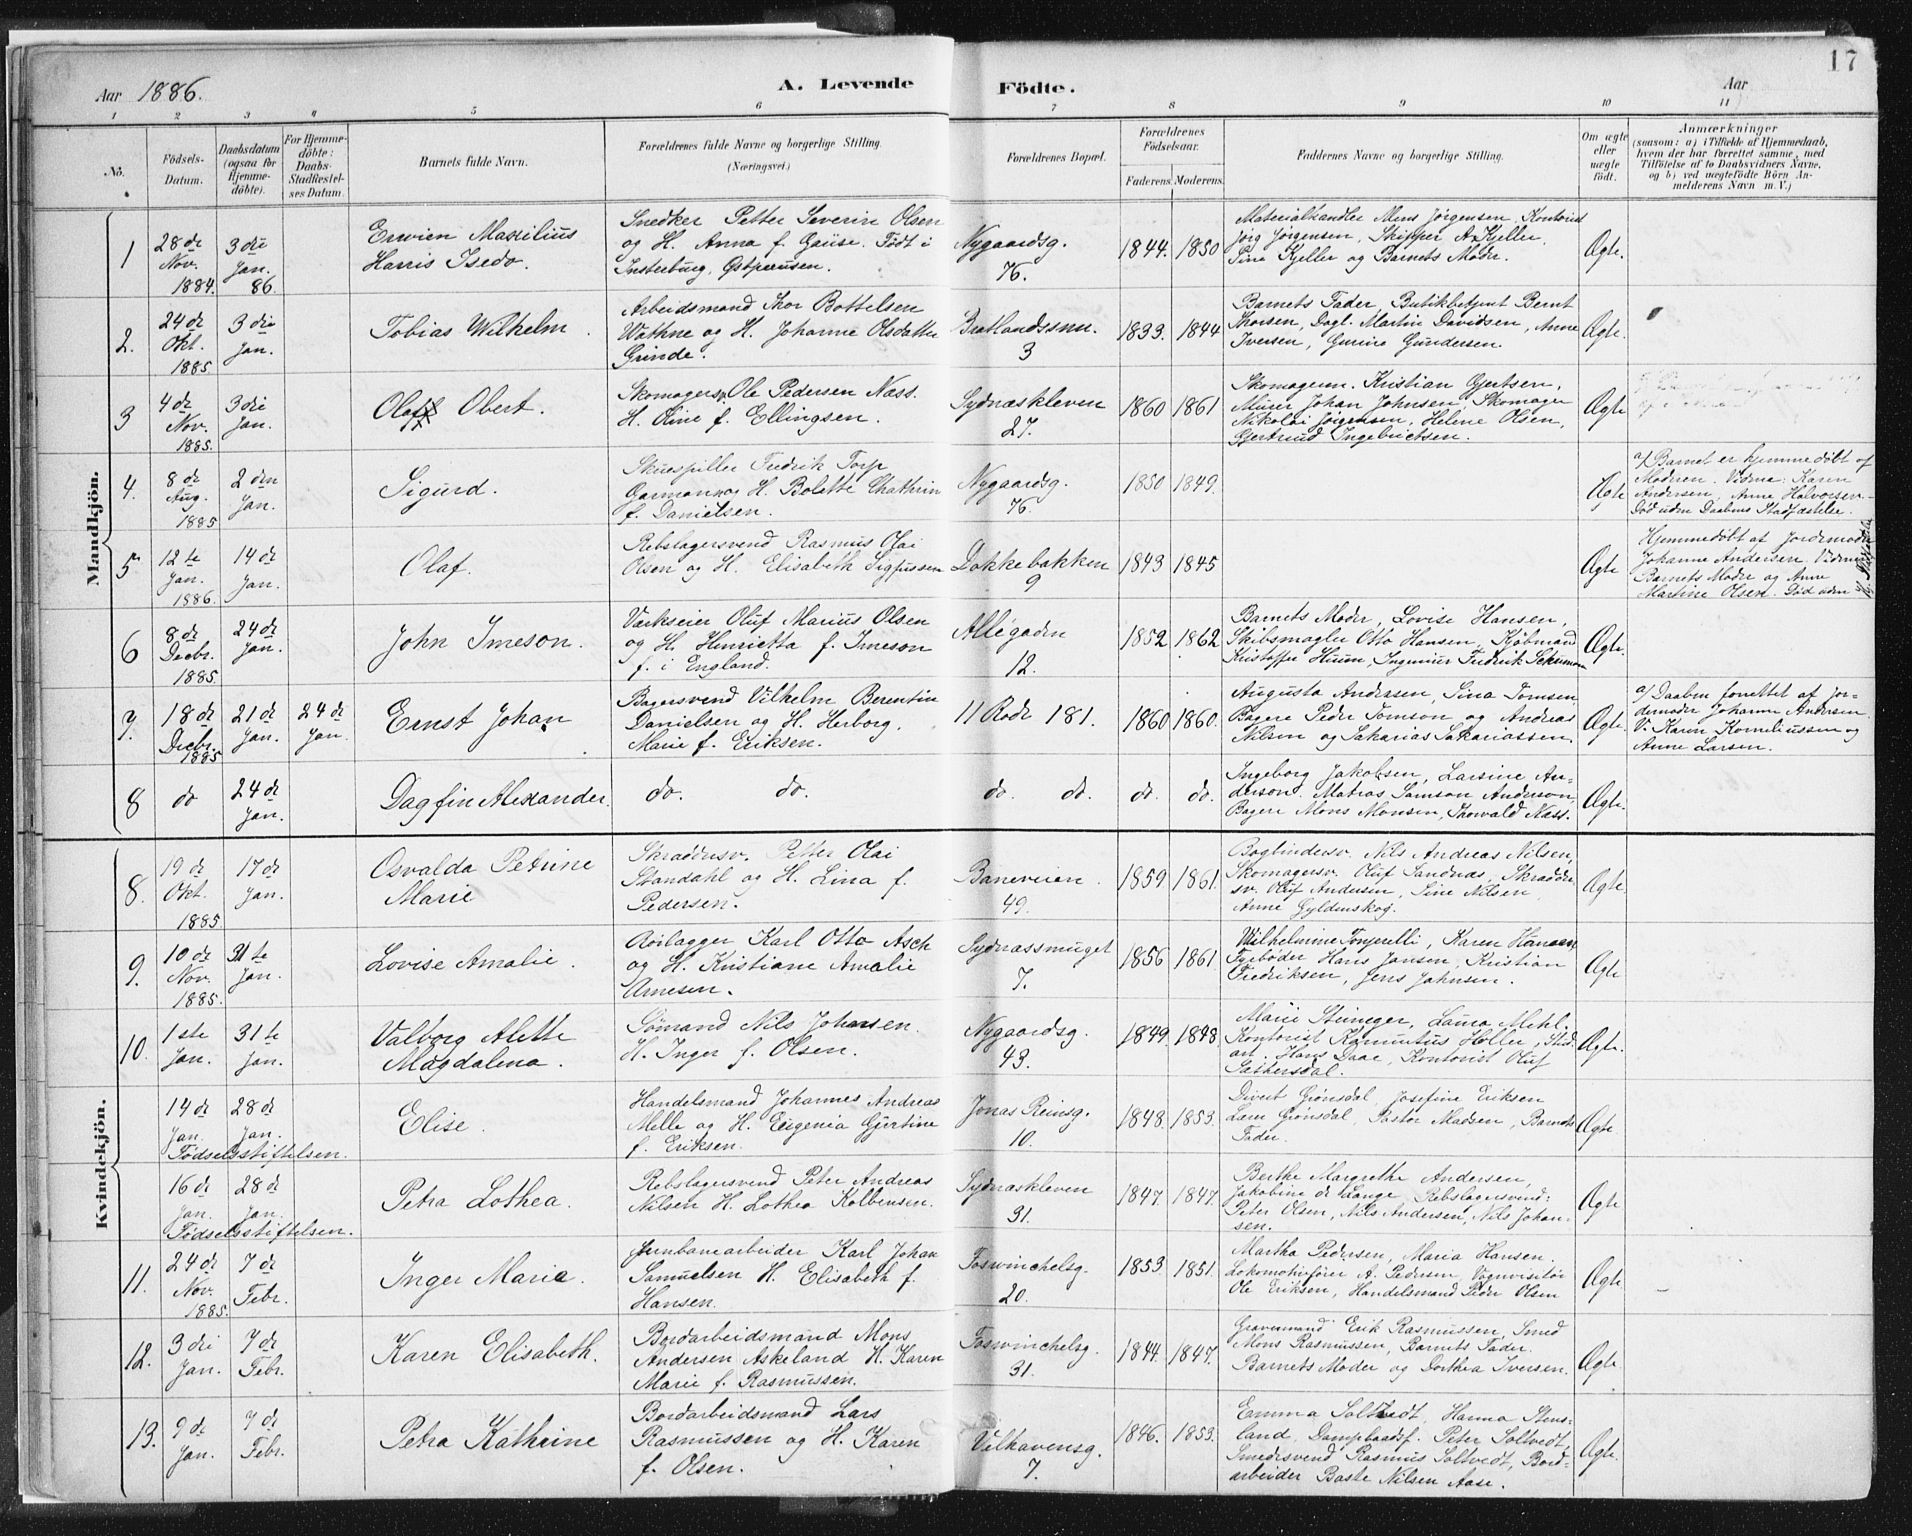 17
Aar 1886.
A. Levende Födte.
Aar
1 2 3 4 5 6 7 8 9 10 11
No.
Födsels-Datum.
Daabsdatum (ogsaa for Hjemmedöbte).
For Hjemmedöbte: Daabs-Stadfæstelses Datum.
Barnets fulde Navn.
Forældrenes fulde Navne og borgerlige Stilling. (Næringsvei.)
Forældrenes Bopæl.
Forældrenes Födselsaar.
Faderens. Moderens.
Faddernes Navne og borgerlige Stilling.
Om ægte eller uægte födt.
Anmærkninger
(saasom: a) i Tilfælde af Hjemmedaab, hvem der har forrettet samme, med Tilföielse af to Daabsvidners Navne, og b) ved uægtefödte Börn Anmelderens Navn m. V.)
Mandkjön.
1
28 de Nov. 1884.
3 die Jan. 86.
Erwien Maxilius
Harris Isedo.
Snedker Petter Severin Olsen
og H. Anna f. Gause. Født i
Insterburg, Østpreusen.
Nygaardsg. 76.
1844. 1850
Materialhandler Mens Jørgensen, Kontorist
Jørg Jørgensen, Skipper A. Kjeller,
Sine Kjeller og Barnets Moder.
Ægte.
2.
24 de Okt. 1885
3 die Jan.
Tobias Wilhelm
Arbeidsmand Thor Bottelsen
Wathne og H. Johanne Olsdatter
Grinde.
Bratlandssmu. 3
1833. 1844
Barnets Fader, Butikbetjent Bernt
Thorsen, Dagl. Martin Davidsen, Anne
Iversen, Gurine Gundersen.
Ægte.
3
4 de Nov. 1885.
3 die Jan.
Olaf Obert.
Skomagersv. Ole Pedersen Næss.
H. Oline f. Ellingsen.
Sydnæskleven 27.
1860 1861
Skomagersv. Kristian Gjertsen,
Murer Johan Johnsen, Skomager
Nikolai Jørgensen, Helene Olsen,
Gjertrud Ingebrictsen.
Ægte
4.
8 de Aug. 1885
2 den Jan.
Sigurd.
Skuespiller Fredrik Torp
Garmann og H. Bolette Chathrin
f. Danielsen.
Nygaardsg. 76.
1850 1849.
Ægte
a/ Barnet er hjemmedøbt af
Moderen. Vidne: Karen
Andersen, Anne Halvorsen
Død uden Daabens Stadfæstelse.
5
12 te Jan. 1886.
14 de Jan.
Olaf.
Rebslagersvend Rasmus Olai
Olsen og H. Elisabeth Sigfussen
Dokkebakken 9
1843 1845
Ægte
Hjemmedøbt af Jordemoder
Johanne Andersen. Vidner
Barnets Moder og Anne
Martine Olsen. Død uden
6
8 de Decbr. 1885.
24 de Jan.
John Imeson.
Værkseier Oluf Marius Olsen
og H. Henrietta f. Imeson
f. i England.
Allégaden 12.
1852 1862
Barnets Moder, Lovise Hansen,
Skibsmægler Otto Hansen, Kjøbmand
Kristoffer Huun, Ingeniur Fredrik Schumann
Ægte.
7.
18 de Decbr. 1885
21 de Jan.
24 de Jan.
Ernst Johan
Bagersvend Vilhelm Berentin
Danielsen og H. Herborg
Marie f. Eriksen.
11 Rode 181.
1860 1860.
Augusta Andersen, Sina Tomsen
Bagere Peder Tomson og Andreas
Nilsen og Sakarias Sakariassen
Ægte.
a/ Daaben forrettet af Jor-
demoder Johanne Andersen.
V. Karen Korneliussen og
Anne Larsen.
8
do
24 de Jan.
Dagfin Alexander.
do. do.
do. do. do. do.
Ingeborg Jakobsen, Larsine An-
derson. Matros Samson Anderson,
Bager Mons Monsen, Thorvald Næss.
Ægte.
Kvindekjön.
8.
19 de Okt. 1885
17 de Jan.
Osvalda Petrine
Marie
Skræddersv. Petter Olai
Standahl og H. Lina f.
Pedersen.
Baneveien. 49.
1859. 1861.
Bogbindersv. Nils Andreas Nilsen,
Skomagersv. Oluf Sandnæs, Skrædder-
sv. Oluf Andersen, Sine Nilsen
Anne Gyldenskog.
Ægte
9.
10 de Nov. 1885.
31 te Jan.
Lovise Amalie.
Røilægger Karl Otto Asch
og H. Kristiane Amalie
Arnesen.
Sydnæssmuget 7.
1856 1861.
Wilhelmine Tonjerelli, Karen Hansen
Fyrbøder Hans Jansen, Kristian
Fredriksen, Jens Jahnsen.
Ægte
10.
1ste Jan.
31 te Jan.
Valborg Alette
Magdalena.
Sømand Nils Johansen.
H. Inger f. Olsen.
Nygaardsg. 43.
1849. 1848.
Marie Steineger, Laura Mehl.
Kontorist Rasmutus Holler, Stud.
art. Hans Daae, Kontorist Oluf
Sæthersdal.
Ægte.
14 de Jan.
28 de Jan.
Fødselsstiftelsen.
Elise.
Handelsmand Johannes Andreas
Melle og H. Eugenia Gjertine
f. Eriksen.
Jonas Reinsg. 10.
1848. 1853.
Divert Grønsdal, Josefine Eriksen
Lars Grønsdal, Pastor Madsen, Barnets
Fader.
Ægte.
16 de Jan.
28 de Jan.
Fødselsstiftelsen.
Petra Lothea.
Rebslagersvend Peter Andreas
Nilsen H. Lothea Kolbensen.
Sydnæskleven 31.
1847. 1847.
Berthe Margrethe Andersen,
Jakobine de Lange, Rebslagersvend:
Peter Olsen, Nils Andersen, Nils Johan-
sen.
Ægte
11.
24 de Nov. 1885.
7 de Febr.
Inger Marie.
Jernbanearbeider Karl Johan
Samuelsen H. Elisabeth f.
Hansen.
Foswinchelsg. 20.
1853. 1851.
Martha Pedersen, Maria Hansen.
Lokomotivfører A. Pedersen, Vognvisitør
Ole Eriksen, Handelsmand Peder Olsen
Ægte.
12.
3 die Jan.
7 de Febr.
Karen Elisabeth.
Bordarbeidsmand Mons
Andersen Askeland H. Karen
Marie f. Rasmussen.
Foswinchelsg. 31.
1844. 1847.
Gravermand Erik Rasmussen, Smed
Mons Rasmussen, Barnets Fader.
Barnets Moder og Dorthea Iversen.
Ægte
13.
9 de Jan.
7 de Febr.
Petra Kathrine
Bordarbeidsmand Lars
Rasmussen og H. Karen
f. Olsen.
Vilhavensg. 7.
1846. 1853.
Emma Soltvedt, Hanna Stens-
land, Peter Soltvedt,
Smedesvend Rasmus Soltvedt, Bord-
arbeider Baste Nilsen Aase.
Ægte.